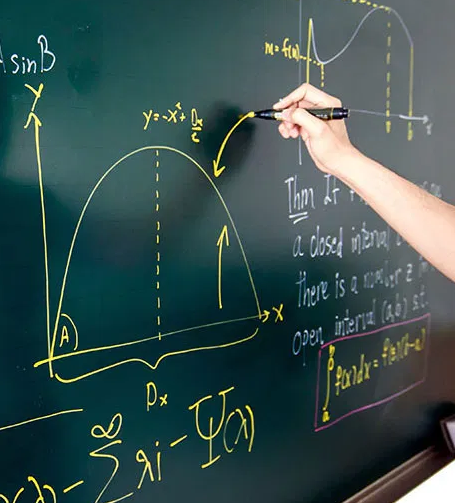 A sin B
y
y = -x² +
m = f(x)
A
x
Dx
Thm If
a closed interval
there is a number z in
open interval (a,b) s.t.
∫ₐᵇ f(x)dx = f(z)(b-a)
(λ) - ∑^∞ λi - Ψ(λ)